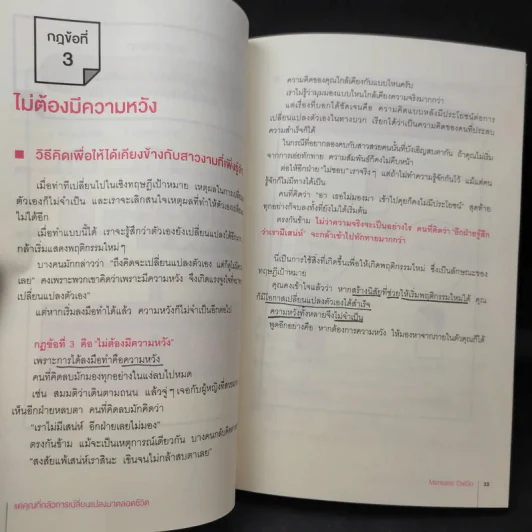 กฎข้อที่
3
ไม่ต้องมีความหวัง
วิธีคิดเพื่อให้ได้เคียงข้างกับสาวงามที่เพิ่งรู้จัก
เมื่อทำทีเปลี่ยนไปในเชิงทฤษฎีเป้าหมาย เหตุผลในการเปลี่ยน
ตัวเองก็ไม่จำเป็น และเราจะเลิกสนใจเหตุผลที่ทำให้ตัวเองเปลี่ยน
ไม่ได้อีก
เมื่อทำแบบนี้ได้ เราจะรู้สึกว่าตัวเองยังเปลี่ยนแปลงได้อีก
กล้าเริ่มแสดงพฤติกรรมใหม่ๆ
บางคนมักกล่าวว่า "ถึงคิดจะเปลี่ยนแปลงตัวเอง แต่ก็ดูไม่มี
เลย" คงเพราะพวกเขาคิดว่าเพราะมีความหวัง จึงเกิดแรงจูงใจที่จะ
เปลี่ยนแปลงตัวเอง"
แต่หากเริ่มลงมือทำได้แล้ว ความหวังก็ไม่จำเป็นอีกต่อไป
กฎข้อที่ 3 คือ "ไม่ต้องมีความหวัง"
เพราะการได้ลงมือทำคือความหวัง
คนที่คิดลบมักมองทุกอย่างในแง่ลบไปหมด
เช่น สมมติว่าเดินตามถนน แล้วจู่ๆ เจอกับผู้หญิงที่สวย
เห็นอีกฝ่ายหลบตา คนที่คิดลบมักคิดว่า
"เราไม่มีเสน่ห์ อีกฝ่ายเลยไม่มอง"
ตรงกันข้าม แม้จะเป็นเหตุการณ์เดียวกัน บางคนกลับคิด
"สงสัยแพ้เสน่ห์เราสินะ เขินจนไม่กล้าสบตาเลย"
แด่คุณที่กลัวการเปลี่ยนแปลงมาตลอดชีวิต
ความคิดของคุณใกล้เคียงกับแบบไหนครับ
เราไม่รู้ว่ามุมมองแบบไหนใกล้เคียงความจริงมากกว่า
แต่เรื่องที่บอกได้ชัดเจนคือ ความคิดแบบหลังมีประโยชน์ต่อการ
เปลี่ยนแปลงตัวเองในทางบวก เรียกได้ว่าเป็นความคิดของคนที่ประสบ
ความสำเร็จก็ได้
ในกรณีที่อยากลองคบกับสาวสวยคนนั้นที่บังเอิญสบตากัน ถ้าคุณไม่เริ่ม
จากการเอ่ยทักทาย ความสัมพันธ์ก็คงไม่คืบหน้า
ต่อให้อีกฝ่าย "ไม่ชอบ" เราจริงๆ แต่ถ้าไม่ทำความรู้จักกันไว้ แม้แต่คน
รู้จักก็ไม่มีทางได้เป็น
คนที่คิดว่า "อา เธอไม่มองมา เข้าไปคุยก็คงไม่มีประโยชน์" สุดท้าย
ทุกอย่างก็จบลงทั้งที่ยังไม่ได้เริ่มต้น
ตรงกันข้าม ไม่ว่าความจริงจะเป็นอย่างไร คนที่คิดว่า "อีกฝ่ายรู้สึก
ว่าเรามีเสน่ห์" จะกล้าเข้าไปทักทายมากกว่า
นี่เป็นการใช้สิ่งที่เกิดขึ้นเพื่อให้เกิดพฤติกรรมใหม่ ซึ่งเป็นลักษณะของ
ทฤษฎีเป้าหมาย
คุณคงเข้าใจแล้วว่า หากสร้างนิสัยที่ช่วยให้เริ่มพฤติกรรมใหม่ได้ คุณ
ก็มีโอกาสเปลี่ยนแปลงตัวเองได้สำเร็จ
ความหวังทั้งหลายจึงไม่จำเป็น
พูดอีกอย่างคือ หากต้องการความหวัง ให้มองหาจากภายในตัวคุณก็ได้